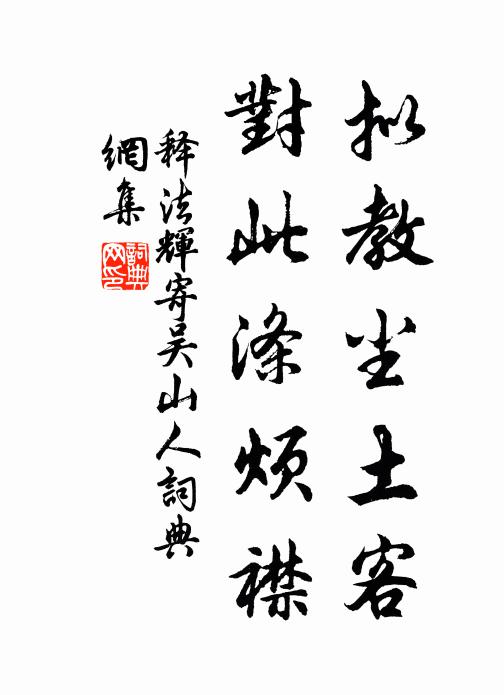 拟教尘土客
對此涤烦襟
释法輝寄吴山人詞典
網集
詞典
网印